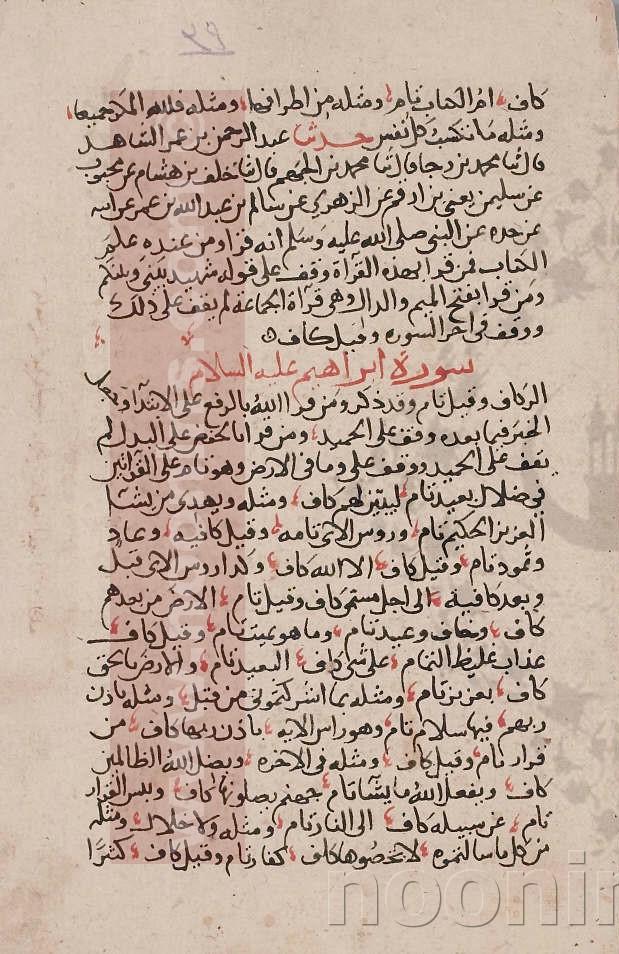 ٩٢
كاف ؛ ام الكتاب تام ؛ ومثله من اطرافها ؛ ومثله فلله المكر جميعا ؛
ومثله ما تكسب كل نفس حدثنا عبد الرحمن بن عمر الشاهد
قال نا محمد بن قال نا محمد بن الجهم قال نا خلف بن هشام عن محبوب
عن سليمن يعني بن ارقم عن الزهري عن سالم بن عبد الله بن عمر عن ابيه
عن جده عن النبي صلى الله عليه وسلم انه قرا ومن عنده علم
الكتاب فمن قرا بهذه القراة وقف على قوله شهيدا بيني وبينكم
ومن قرا بفتح الميم والدال وهي قراة الجماعة لم يقف على ذلك
ووقف في اخر السورة وقيل كاف
سورة ابراهيم عليه السلام
الر كاف وقيل تام وقد ذكر ومن قرا الله بالرفع على الابتداء وجعل
الخبر فيما بعده وقف على الحميد ؛ ومن قرا بالخفض على البدل لم
يقف على الحميد ووقف على وما في الارض وهو تام على القراتين
في ضلال بعيد تام ؛ ليبين لهم كاف ؛ ومثله ويهدي من يشا
العزيز الحكيم تام ؛ وروس الاي تامة ؛ وقيل كافية ؛ وعاد
وثمود تام ؛ وقيل كاف ؛ الا الله كاف ؛ وكذا روس الاي قبل
وبعد كافية ؛ الى اجل مسمى كاف وقيل تام ؛ الارض من بعدهم
كاف ؛ وخاف وعيد تام ؛ وما هو بميت تام ؛ وقيل كاف ؛
عذاب غليظ التمام ؛ على شي كاف ؛ البعيد تام ؛ والارض بالحق
كاف ؛ بعزيز تام ؛ ومثله بما اشركتموني من قبل ؛ ومثله باذن
ربهم ؛ فيها سلام تام ؛ وهو راس الاية ؛ باذن ربها كاف ؛ من
قرار تام ؛ وقيل كاف ؛ ومثله في الاخرة ؛ ويضل الله الظالمين
كاف ؛ ويفعل الله ما يشا تام ؛ جهنم يصلونها كاف ؛ وبيس القرار
تام ؛ عن سبيله كاف ؛ الى النار تام ؛ ومثله ولا خلال ؛ ومثله
من كل ما سالتموه ؛ لا تحصوها كاف ؛ كفار تام وقيل كاف ؛ كثيرا
noonin